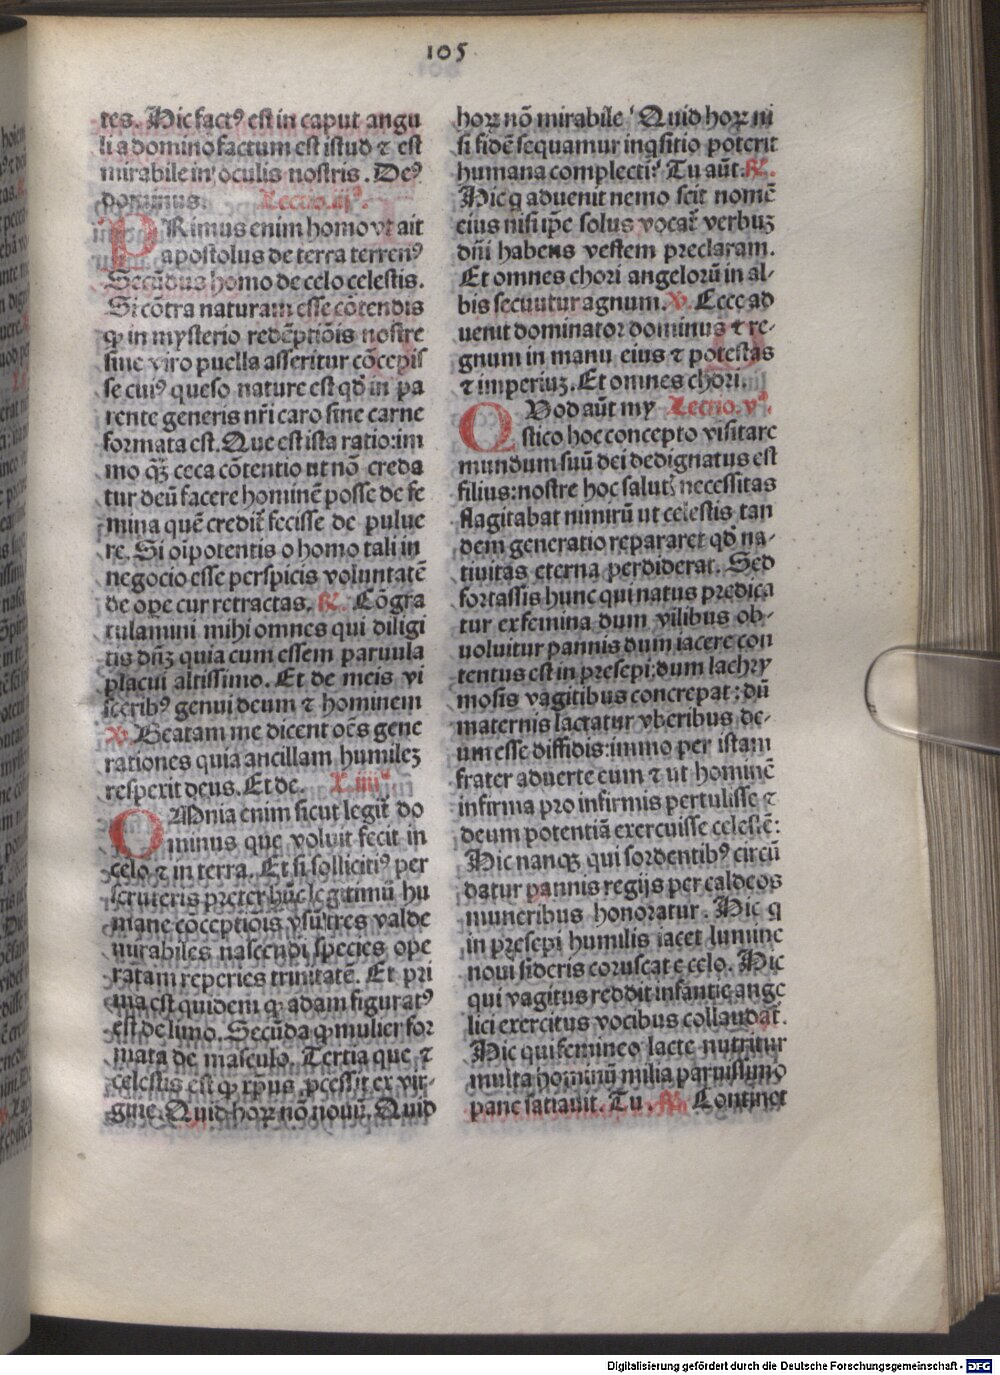 105
tes. Hic factꝰ est in caput angu
li a domino factum est istud ⁊ est
mirabile in oculis nostris. Deꝰ
dominus. Lectio.iijª.
PRimus enim homo vt ait
apostolus de terra terrenꝰ
Secūdus homo de celo celestis.
Si cōtra naturam esse cōtendis
ꝙ in mysterio redēptiōis nostre
sine viro puella asseritur cōcepis
se cuiꝰ queso nature est qđ in pa
rente generis nr̄i caro sine carne
formata est. Que est ista ratio: im
mo q̄ꝫ ceca cōtentio ut nō creda
tur deū facere hominē posse de fe
mina quē credit̄ fecisse de pulue
re. Si oīpotentis o homo tali in
negocio esse perspicis voluntatē
de ope cur retractas. ℟. Cōgra
tulamini mihi omnes qui diligi
tis dn̄ꝫ quia cum essem paruula
placui altissimo. Et de meis vi
sceribꝰ genui deum ⁊ hominem
℣. Beatam me dicent oēs gene
rationes quia ancillam humileꝫ
respexit deus. Et de. L.iiijª
OMnia enim sicut legit̄ do
minus que voluit fecit in
celo ⁊ in terra. Et si sollicitiꝰ per
scruteris preter hūc legitimū hu
mane cōceptiōis vsū tres valde
mirabiles nascendi species ope
ratam reperies trinitatē. Et pri
ma est quidem ꝙ adam figuratꝰ
est de limo. Secūda ꝙ mulier for
mata de masculo. Tertia que ⁊
celestis est ꝙ xp̄us ꝓcessit ex vir-
gine. Quid hoꝝ nō nouū. Quid
hoꝝ nō mirabile? Quid hoꝝ ni
si fidē sequamur inq̄sitio poterit
humana complecti? Tu aūt. ℟.
Hic q̄ aduenit nemo scit nomē
eius nisi ip̄e solus vocat̄ verbuꝫ
dn̄i habens vestem preclaram.
Et omnes chori angelorū in al-
bis secuutur agnum. ℣. Ecce ad
uenit dominator dominus ⁊ re-
gnum in manu eius ⁊ potestas
⁊ imperiuꝫ. Et omnes chori.
QVod aūt my Lectio.vª.
stico hoc concepto visitare
mundum suū dei dedignatus est
filius: nostre hoc salutꝭ necessitas
flagitabat nimirū ut celestis tan
dem generatio repararet qđ na-
tiuitas eterna perdiderat. Sed
fortassis hunc qui natus predica
tur ex femina dum vilibus ob-
uoluitur pannis dum iacere con
tentus est in presepi: dum lachry
mosis vagitibus concrepat: dū
maternis lactatur vberibus de-
um esse diffidis: immo per istam
frater aduerte eum ⁊ ut hominē
infirma pro infirmis pertulisse ⁊
deum potentiā exercuisse celestē:
Hic nanqꝫ qui sordentibꝰ circū
datur pannis regijs per caldeos
muneribus honoratur. Hic q̄
in presepi humilis iacet lumine
noui sideris coruscat e celo. Hic
qui vagitus reddit infantie ange
lici exercitus vocibus collaudat̄.
Hic qui femineo lacte nutritur
multa hominū milia paruissimo
pane satiauit. Tu. ℟. Continet
Digitalisierung gefördert durch die Deutsche Forschungsgemeinschaft - DFG